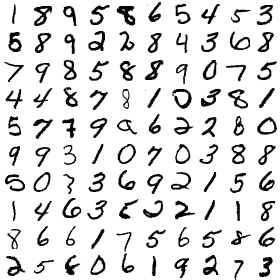 1 8 9 5 8 6 5 4 5 3
5 8 9 2 2 8 4 3 6 8
7 9 8 5 8 8 9 0 7 5
4 4 8 7 8 1 0 3 8 1
5 7 7 9 a 6 2 2 8 0
9 9 3 1 0 7 0 3 8 8
5 0 3 3 6 9 2 1 5 6
1 4 6 3 5 2 2 1 1 8
8 6 6 1 7 5 6 5 8 6
2 5 6 0 6 1 9 2 7 3